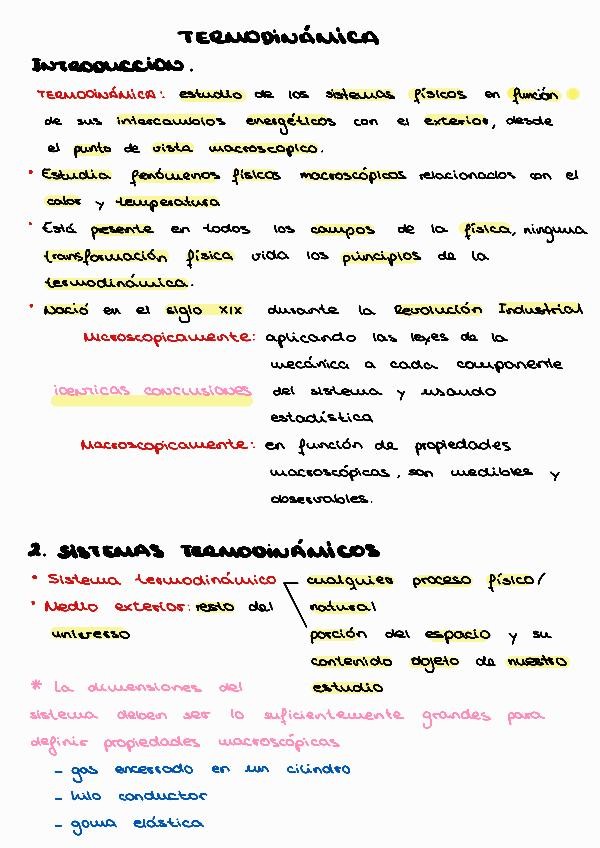 TERMODINÁMICA
INTRODUCCION.
TERMODINÁMICA: estudio de los sistemas físicos en función
de sus intercambios energéticos con el exterior, desde
el punto de vista macroscopico.
• Estudia fenómenos físicos macroscópicos relacionados con el
calor y temperatura
• Está presente en todos los campos de la física, ninguna
transformación física viola los principios de la
termodinámica.
• Nació en el siglo XIX durante la Revolución Industrial
Microscopicamente: aplicando las leyes de la
mecánica a cada componente
identicas conclusiones del sistema y usando
estadística
Macroscopicamente: en función de propiedades
macroscópicas, son medibles y
observables.
2. SISTEMAS TERMODINÁMICOS
• Sistema termodinámico — cualquier proceso físico/
• Medio exterior: resto del natural
universo porción del espacio y su
contenido objeto de nuestro
* La dimensiones del estudio
sistema deben ser lo suficientemente grandes para
definir propiedades macroscópicas
- gas encerrado en un cilindro
- hilo conductor
- goma elástica